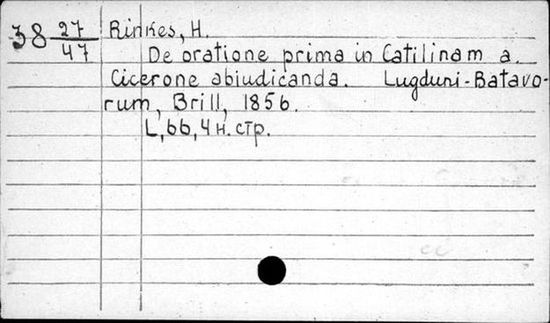 38 27/47 Rinkes, H.
De oratione prima in Catilinam a.
Cicerone abiudicanda. Lugduni-Batavo-
rum, Brill, 1856.
L, 66, 4 н. стр.